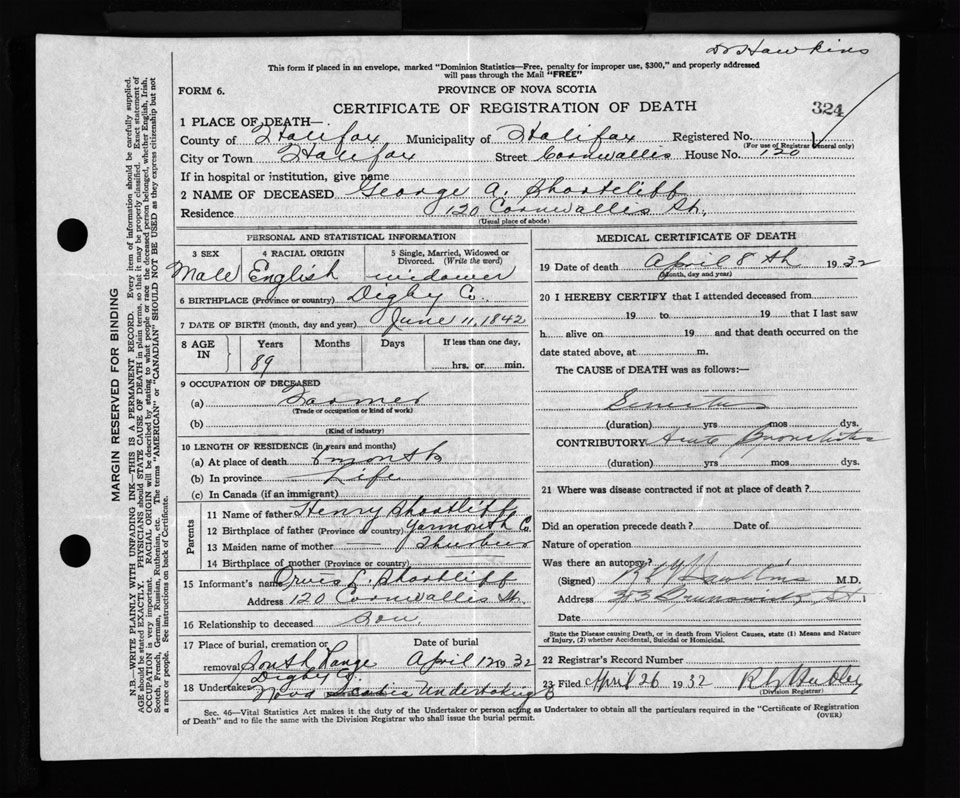 Dr Hawkins
This form if placed in an envelope, marked "Dominion Statistics—Free, penalty for improper use, $300," and properly addressed
will pass through the Mail "FREE"
FORM 6.
PROVINCE OF NOVA SCOTIA
CERTIFICATE OF REGISTRATION OF DEATH
324
1 PLACE OF DEATH—
County of Halifax Municipality of Halifax Registered No.
(For use of Registrar General only)
City or Town Halifax Street Cornwallis House No. 120
If in hospital or institution, give name
2 NAME OF DECEASED George A. Shortliff
Residence 120 Cornwallis St.
(Usual place of abode)
PERSONAL AND STATISTICAL INFORMATION
3 SEX 4 RACIAL ORIGIN 5 Single, Married, Widowed or Divorced. (Write the word)
Male English widower
6 BIRTHPLACE (Province or country) Digby Co.
7 DATE OF BIRTH (month, day and year) June 11, 1842
8 AGE IN Years Months Days If less than one day,
89 hrs. or min.
9 OCCUPATION OF DECEASED
(a) Farmer
(Trade or occupation or kind of work)
(b)
(Kind of industry)
10 LENGTH OF RESIDENCE (in years and months)
(a) At place of death month
(b) In province Life
(c) In Canada (if an immigrant)
Parents
11 Name of father Henry Shortliff
12 Birthplace of father (Province or country) Yarmouth Co
13 Maiden name of mother
14 Birthplace of mother (Province or country)
15 Informant's name Orvis L. Shortliff
Address 120 Cornwallis St.
16 Relationship to deceased son
17 Place of burial, cremation or removal Date of burial
South Range April 12 1932
Digby Co.
18 Undertaker Nova Scotia Undertaking
MEDICAL CERTIFICATE OF DEATH
19 Date of death April 8th 1932
(Month, day and year)
20 I HEREBY CERTIFY that I attended deceased from
19 to 19 that I last saw
h alive on 19 and that death occurred on
date stated above, at m.
The CAUSE of DEATH was as follows:—
Senility
(duration) yrs mos dys.
CONTRIBUTORY Acute Bronchitis
(duration) yrs mos dys.
21 Where was disease contracted if not at place of death?
Did an operation precede death? Date of
Nature of operation
Was there an autopsy?
(Signed) Hawkins M.D.
Address 353 Brunswick St.
Date
State the Disease causing Death, or in death from Violent Causes, state (1) Means and Nature
of Injury, (2) whether Accidental, Suicidal or Homicidal.
22 Registrar's Record Number
23 Filed April 26 1932
(Division Registrar)
Sec. 46—Vital Statistics Act makes it the duty of the Undertaker or person acting as Undertaker to obtain all the particulars required in the "Certificate of Registration
of Death" and to file the same with the Division Registrar who shall issue the burial permit.
(OVER)
MARGIN RESERVED FOR BINDING
N.B.—WRITE PLAINLY WITH UNFADING INK—THIS IS A PERMANENT RECORD. Every item of information should be carefully supplied.
AGE should be stated EXACTLY. PHYSICIANS should STATE CAUSE OF DEATH in plain terms, so that it may be properly classified. Exact statement of
OCCUPATION is very important. RACIAL ORIGIN will be described by stating to what people or race the deceased person belonged, whether English, Irish,
Scotch, French, German, Russian, Ruthenian, etc. The terms "AMERICAN" or "CANADIAN" SHOULD NOT BE USED as they express citizenship but not
a race or people. See instructions on back of Certificate.